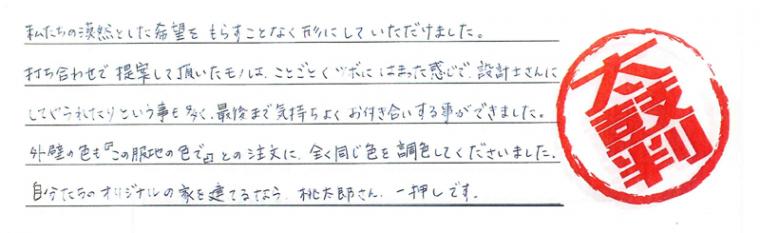 私たちの漠然とした希望をもらすことなく形にしていただけました。
打ち合わせで提案して頂いたモノは、ことごとくツボにはまった感じで、設計士さんに
してやられたりという事も多く、最後まで気持ちよくお付き合いする事ができました。
外壁の色も『この服地の色で』との注文に、全く同じ色を調色してくださいました。
自分たちのオリジナルの家を建てるなら、桃太郎さん、一押しです。
太鼓判